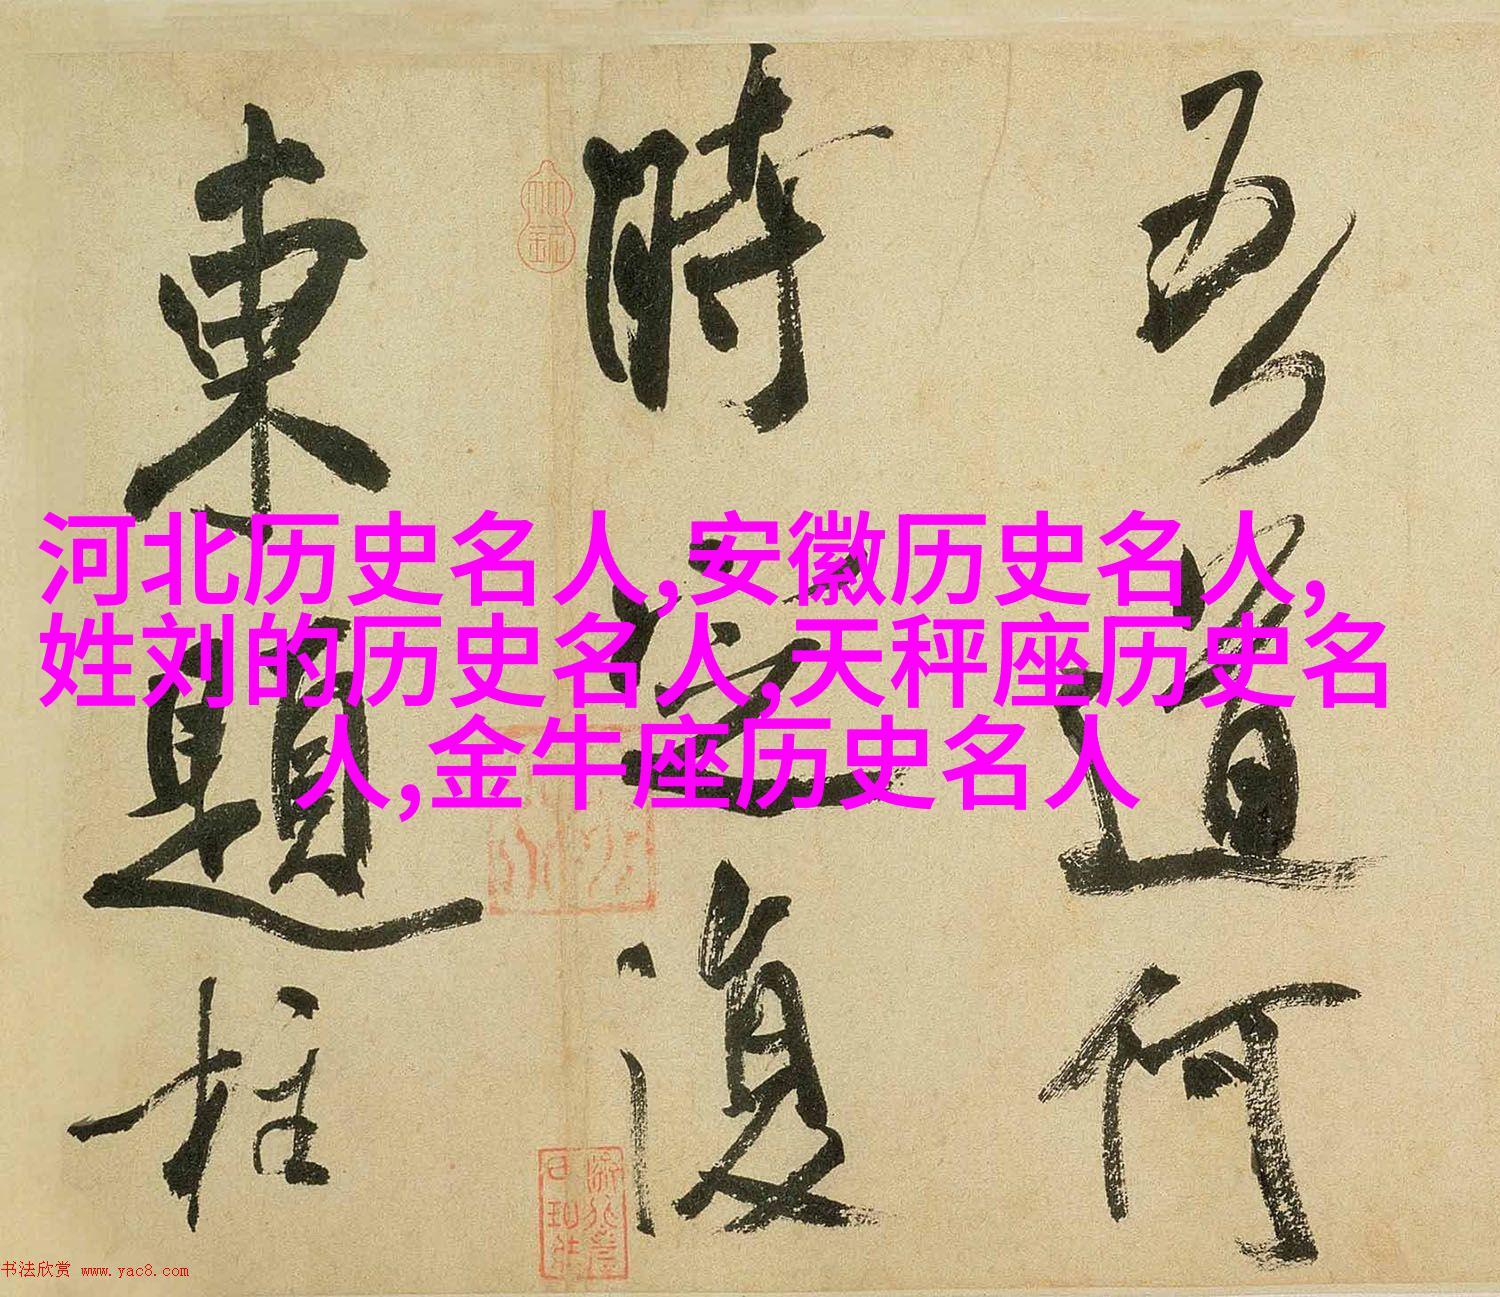 吾道何
時定復
東題柱
河北历史名人,安徽历史名人,
姓刘的历史名人,天秤座历史名
人,金牛座历史名人
书法欣赏 www.yac8.com